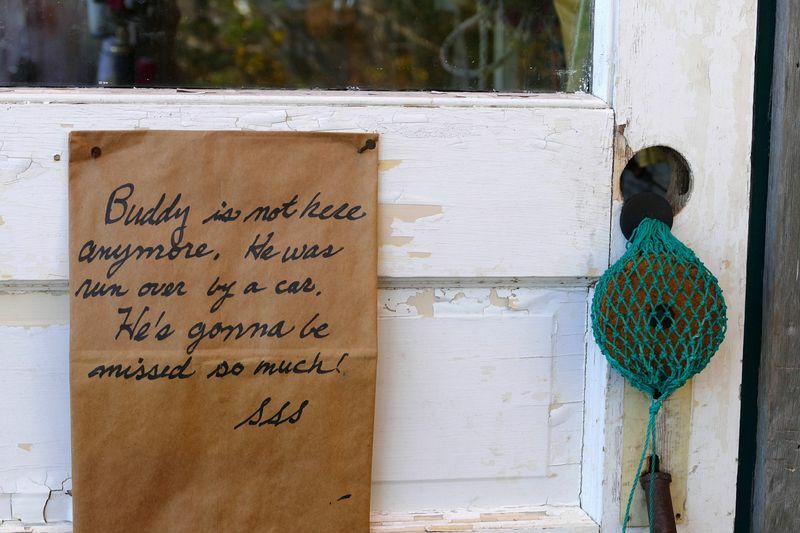 Buddy is not here
anymore. He was
run over by a car.
He's gonna be
missed so much!
SSS